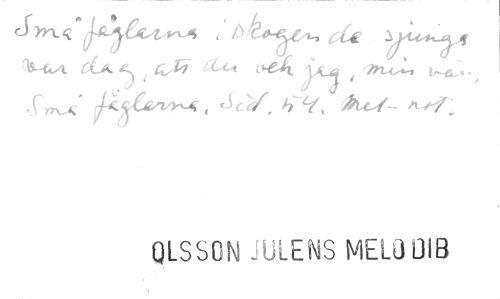 Små fåglarna i skogen de sjunga
var dag, att du och jag, min vän,
Små fåglarna. Sid. 54. Met- not.
OLSSON JULENS MELODIB